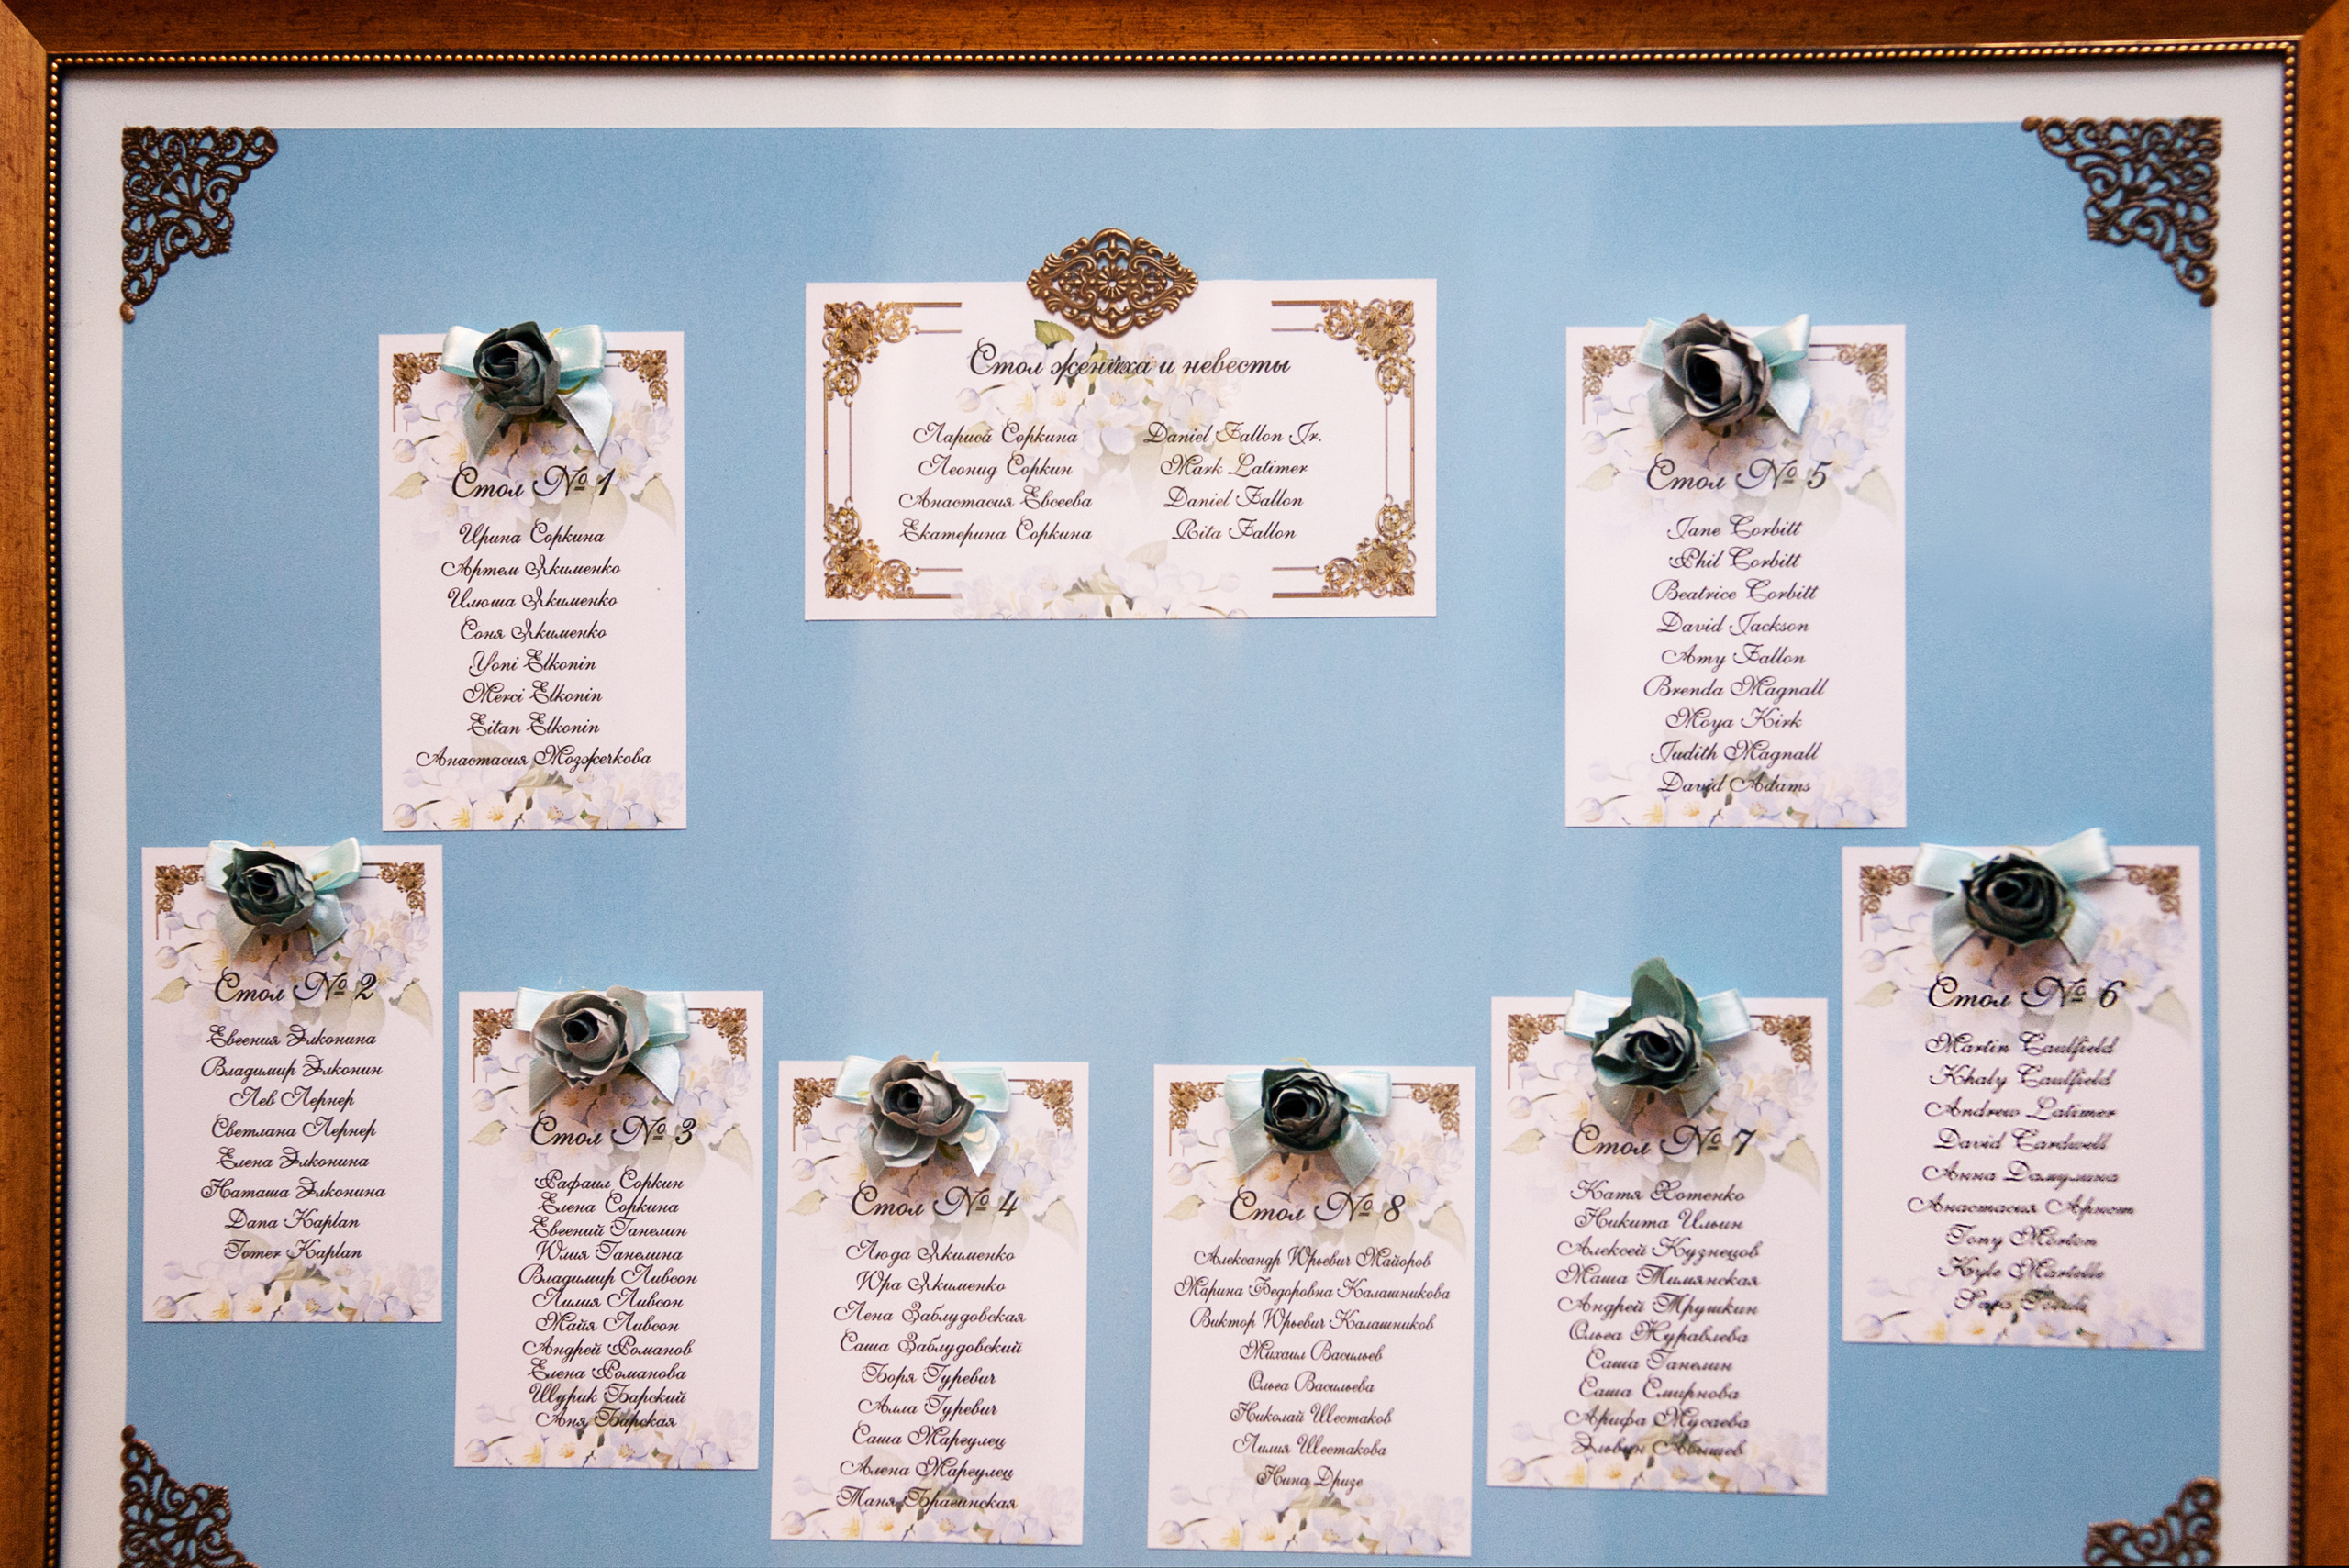 Стол жениха и невесты
Лариса Соркина
Леонид Соркин
Анастасия Евсеева
Екатерина Соркина
Daniel Fallon Jr.
Mark Latimer
Daniel Fallon
Rita Fallon
Стол № 1
Ирина Соркина
Артем Якименко
Илюша Якименко
Соня Якименко
Yoni Elkonin
Merci Elkonin
Eitan Elkonin
Анастасия Мозжечкова
Стол № 5
Jane Corbitt
Phil Corbitt
Beatrice Corbitt
David Jackson
Amy Fallon
Brenda Magnall
Moya Kirk
Judith Magnall
David Adams
Стол № 2
Евгения Элконина
Владимир Элконин
Лев Лернер
Светлана Лернер
Елена Элконина
Наташа Элконина
Dana Kaplan
Tomer Kaplan
Стол № 3
Рафаил Соркин
Елена Соркина
Евгений Ганелин
Юлия Ганелина
Владимир Ливсон
Лилия Ливсон
Майя Ливсон
Андрей Романов
Елена Романова
Шурик Барский
Аня Барская
Стол № 4
Люда Якименко
Юра Якименко
Лена Заблудовская
Саша Заблудовский
Боря Гуревич
Алла Гуревич
Саша Маргулец
Алена Маргулец
Таня Брагинская
Стол № 8
Александр Юрьевич Майоров
Марина Федоровна Калашникова
Виктор Юрьевич Калашников
Михаил Васильев
Ольга Васильева
Николай Шестаков
Лилия Шестакова
Нина Дризе
Стол № 7
Катя Хотенко
Никита Ильин
Алексей Кузнецов
Маша Тимянская
Андрей Трушкин
Ольга Журавлева
Саша Ганелин
Саша Смирнова
Арифа Мусаева
Эльвин Абышев
Стол № 6
Martin Caulfield
Khaly Caulfield
Andrew Latimer
David Cardwell
Анна Дамулина
Анастасия
Tony Morton
Kyle